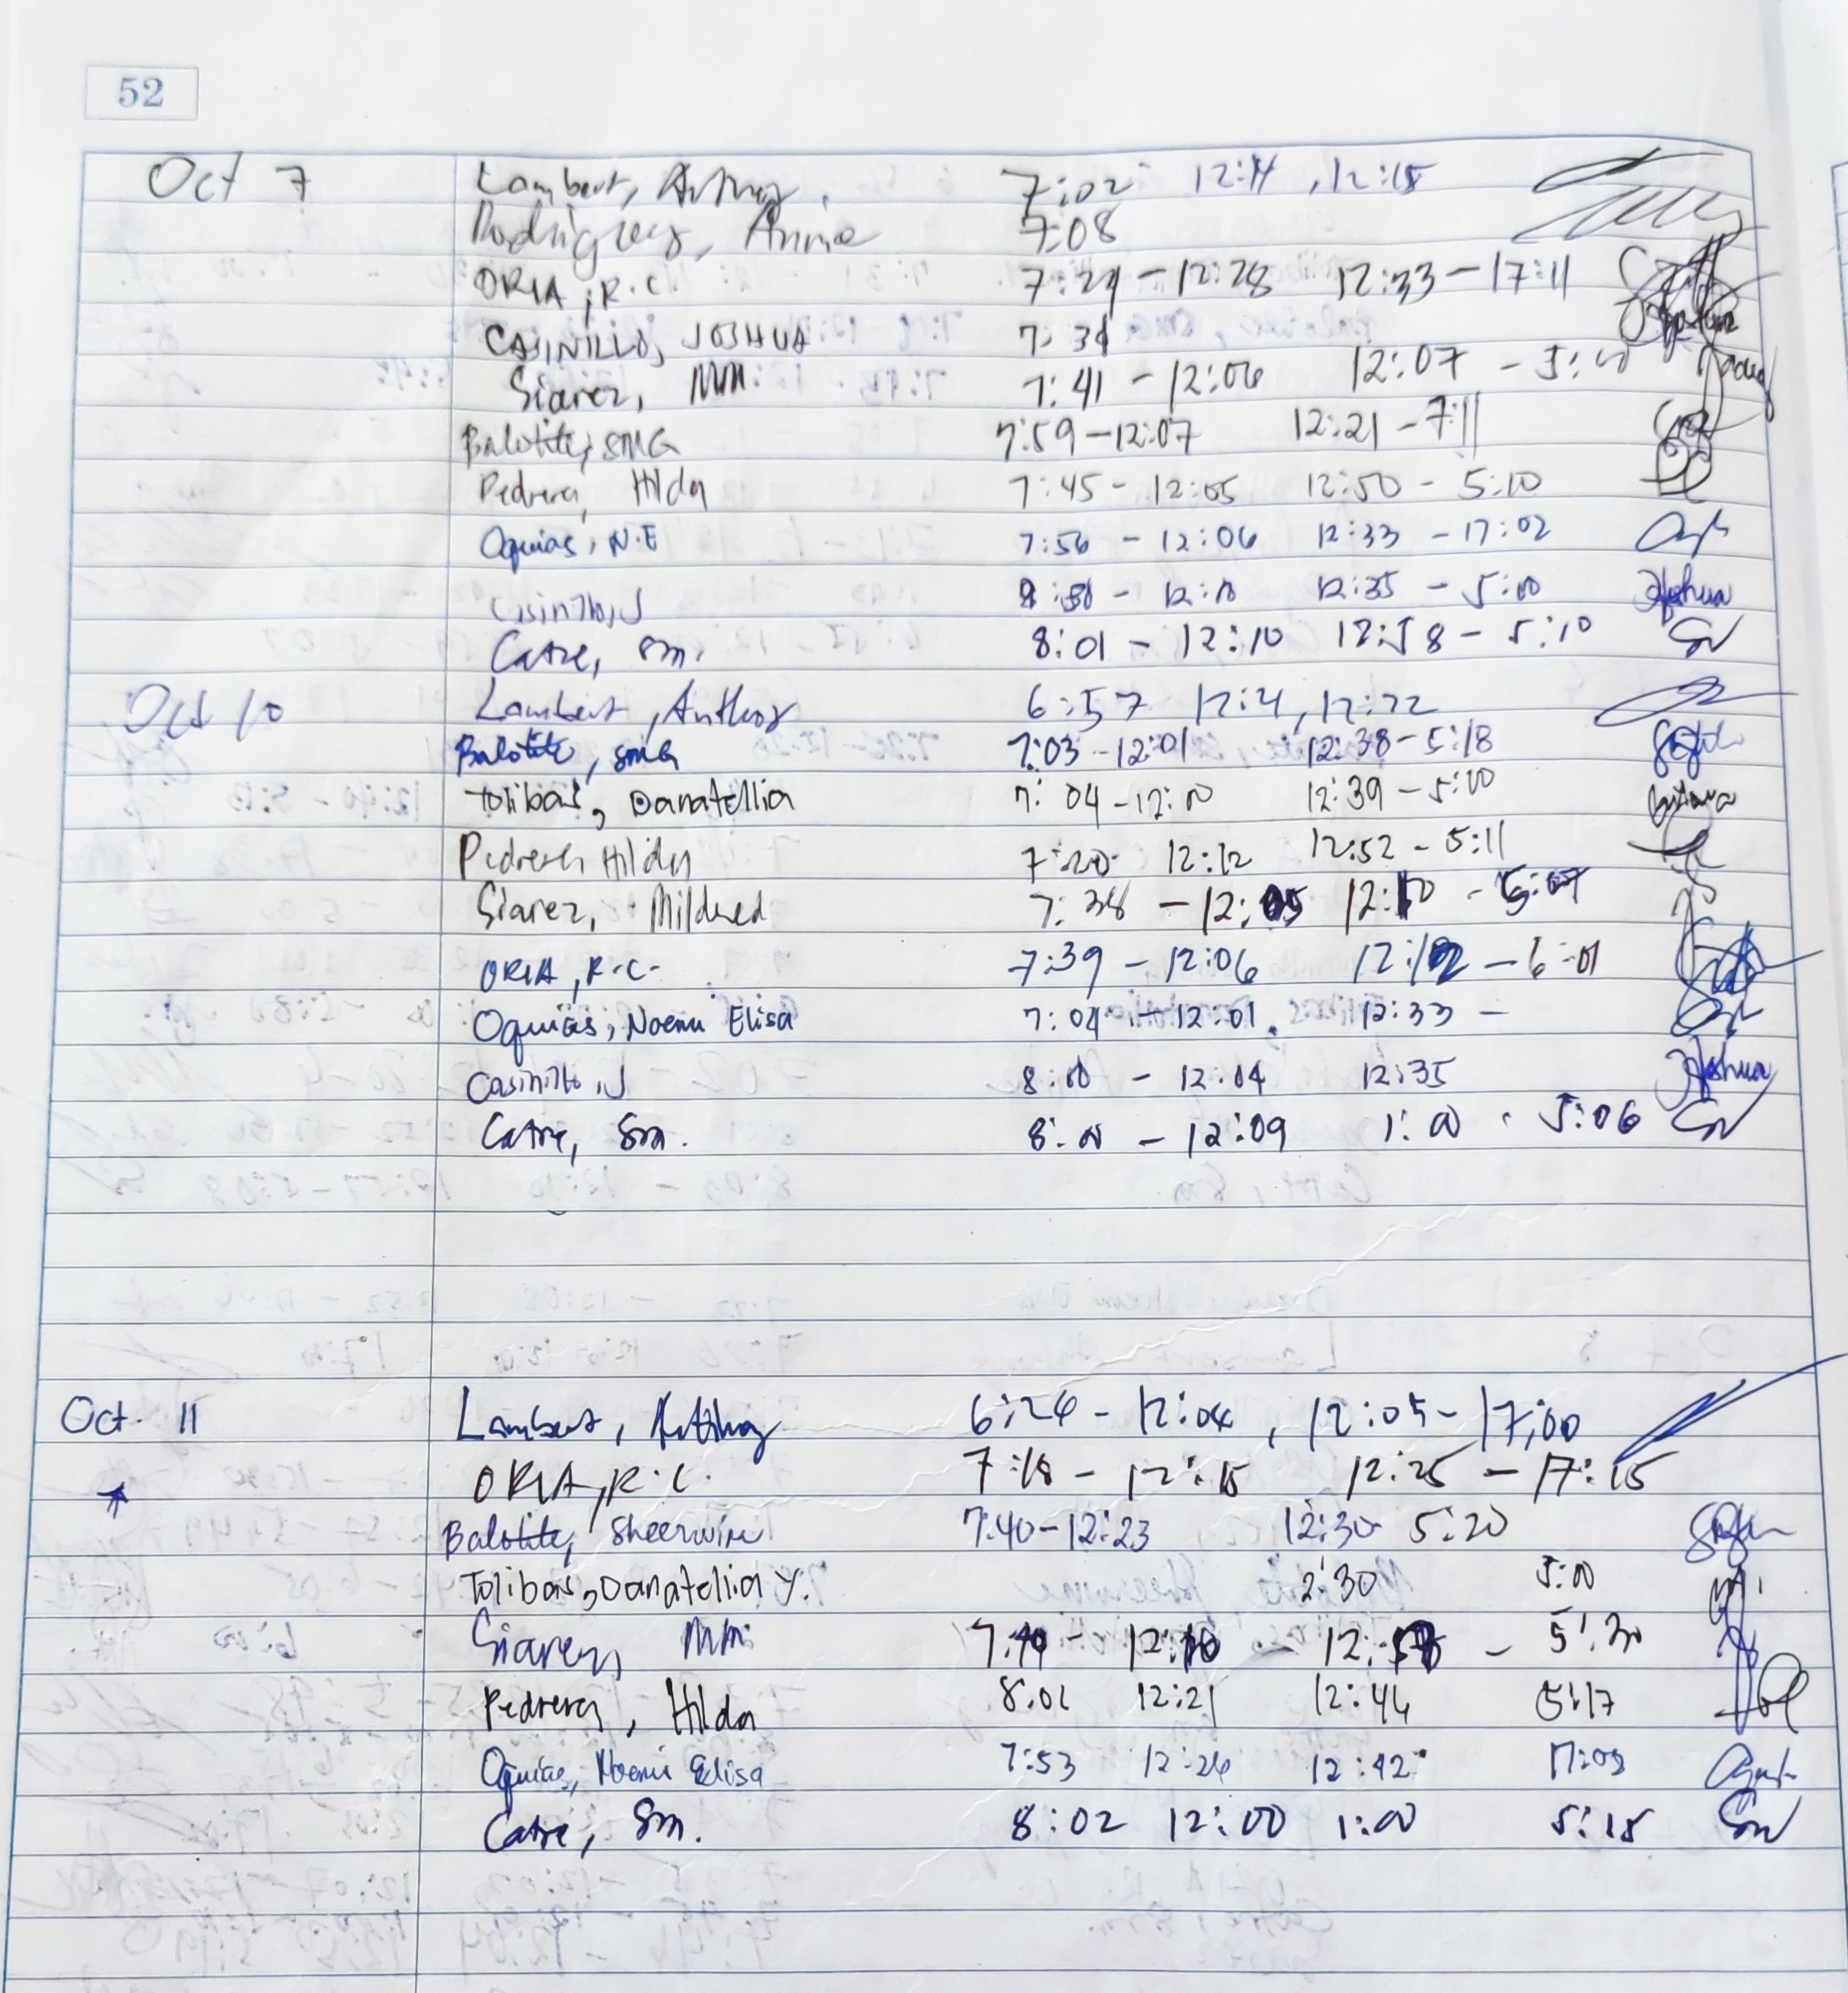 52
Oct 7 Lambert, Anthony 7:02 12:14, 12:15
Rodriguez, Annie 7:08
ORIA, R.C. 7:29 - 12:28 12:33 - 17:11
CASINILLO, JOSHUA 7:31
Siarez, MM. 7:41 - 12:06 12:07 - 5:00
Balotite, SMG 7:59 - 12:07 12:21 - 7:11
Pedrera, Hilda 7:45 - 12:05 12:50 - 5:10
Oquias, N.E 7:56 - 12:06 12:33 - 17:02
Casinillo, J 12:10 12:35 - 5:00 Joshua
Catre, Sm. 8:01 - 12:10 12:58 - 5:10
Oct 10 Lambert, Anthony 6:57 12:21, 12:22
Balotite, SMG 7:03 - 12:01 12:38 - 5:18
Tolibas, Danatellia 7:04 - 12:00 12:39 - 5:00
Pedrera Hilda 7:20 12:12 12:52 - 5:11
Siarez, Mildred 7:38 - 12:05 12:10 - 5:07
ORIA, R.C. 7:39 - 12:06 12:12 - 6:01
Oquias, Noemi Elisa 7:04 - 12:01 12:33 -
Casinillo, J 8:00 - 12:04 12:35 Joshua
Catre, Sm. 8:00 - 12:09 1:00 - 5:06
Oct. 11 Lambert, Anthony 6:24 - 12:04, 12:05 - 17:00
ORIA, R.C. 7:18 - 12:15 12:25 - 17:15
Balotite, Sheerwine 7:40 - 12:23 12:30 5:20
Tolibas, Danatellia Y. 2:30 5:00
Siarez, MM. 7:40 - 12:10 - - 5:30
Pedrera, Hilda 8:01 12:21 12:46 5:17
Oquias, Noemi Elisa 7:53 12:26 12:42 17:03
Catre, Sm. 8:02 12:00 1:00 5:15